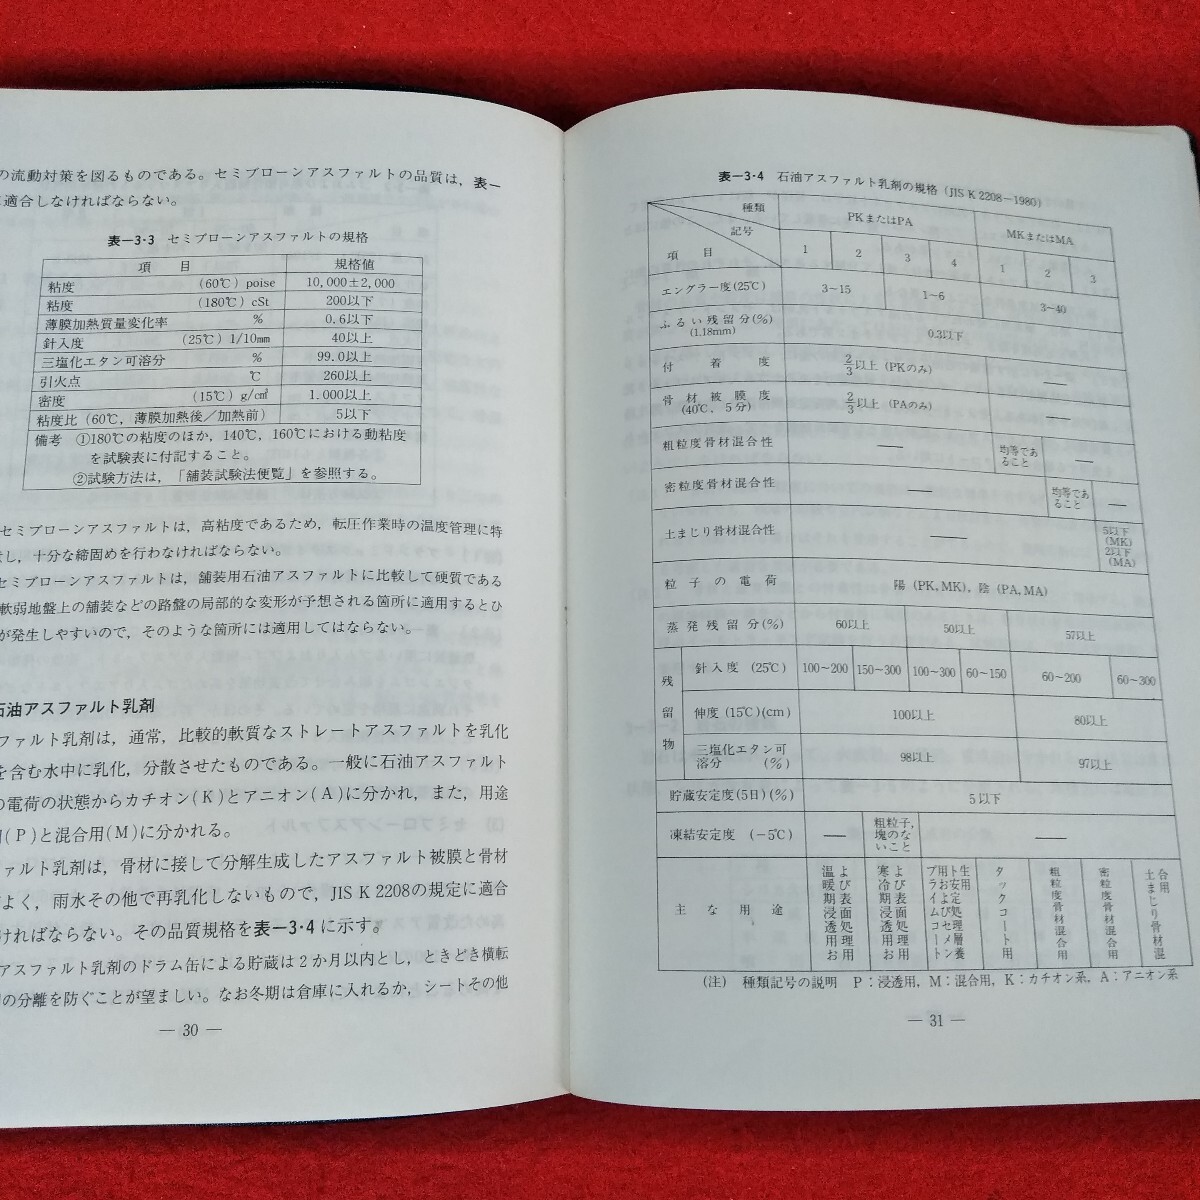 の流動対策を図るものである。セミブローンアスファルトの品質は，表一
適合しなければならない。
表一3・3 セミブローンアスファルトの規格
項 目 規格値
粘度 (60℃) poise 10,000±2,000
粘度 (180℃) cSt 200以下
薄膜加熱質量変化率 % 0.6以下
針入度 (25℃) 1/10mm 40以上
三塩化エタン可溶分 % 99.0以上
引火点 ℃ 260以上
密度 (15℃) g/cm³ 1.000以上
粘度比 (60℃，薄膜加熱後／加熱前) 5以下
備考 ①180℃の粘度のほか，140℃，160℃における動粘度
を試験表に付記すること。
②試験方法は，「舗装試験法便覧」を参照する。
セミブローンアスファルトは，高粘度であるため，転圧作業時の温度管理に特
し，十分な締固めを行わなければならない。
セミブローンアスファルトは，舗装用石油アスファルトに比較して硬質である
軟弱地盤上の舗装などの路盤の局部的な変形が予想される箇所に適用するとひ
が発生しやすいので，そのような箇所には適用してはならない。
石油アスファルト乳剤
ファルト乳剤は，通常，比較的軟質なストレートアスファルトを乳化
を含む水中に乳化，分散させたものである。一般に石油アスファルト
の電荷の状態からカチオン(K)とアニオン(A)に分かれ，また，用途
(P)と混合用(M)に分かれる。
ァルト乳剤は，骨材に接して分解生成したアスファルト被膜と骨材
よく，雨水その他で再乳化しないもので，JIS K 2208の規定に適合
ければならない。その品質規格を表一3・4に示す。
アスファルト乳剤のドラム缶による貯蔵は2か月以内とし，ときどき横転
の分離を防ぐことが望ましい。なお冬期は倉庫に入れるか，シートその他
— 30 —
表一3・4 石油アスファルト乳剤の規格 (JIS K 2208—1980)
種類 記号 PKまたはPA MKまたはMA
項 目 1 2 3 4 1 2 3
エングラー度(25℃) 3〜15 1〜6 3〜40
ふるい残留分(%) (1.18mm) 0.3以下
付 着 度 2/3以上 (PKのみ) ——
骨材被膜度 (40℃，5分) 2/3以上 (PAのみ) ——
粗粒度骨材混合性 —— 均等であること ——
密粒度骨材混合性 —— 均等であること ——
土まじり骨材混合性 —— 5以下 (MK) 2以下 (MA)
粒子の電荷 陽 (PK, MK)，陰 (PA, MA)
蒸発残留分(%) 60以上 50以上 57以上
残留物 針入度 (25℃) 100〜200 150〜300 100〜300 60〜150 60〜200 60〜300
伸度 (15℃)(cm) 100以上 80以上
三塩化エタン可溶分 (%) 98以上 97以上
貯蔵安定度(5日)(%) 5以下
凍結安定度 (−5℃) —— 粗粒子，塊のないこと ——
主な用途
温暖期浸透用および表面処理用
寒冷期浸透用および表面処理用
プライムコート用およびセメント安定処理層養生用
タックコート用
粗粒度骨材混合用
密粒度骨材混合用
土まじり骨材混合用
(注) 種類記号の説明 P：浸透用，M：混合用，K：カチオン系，A：アニオン系
— 31 —